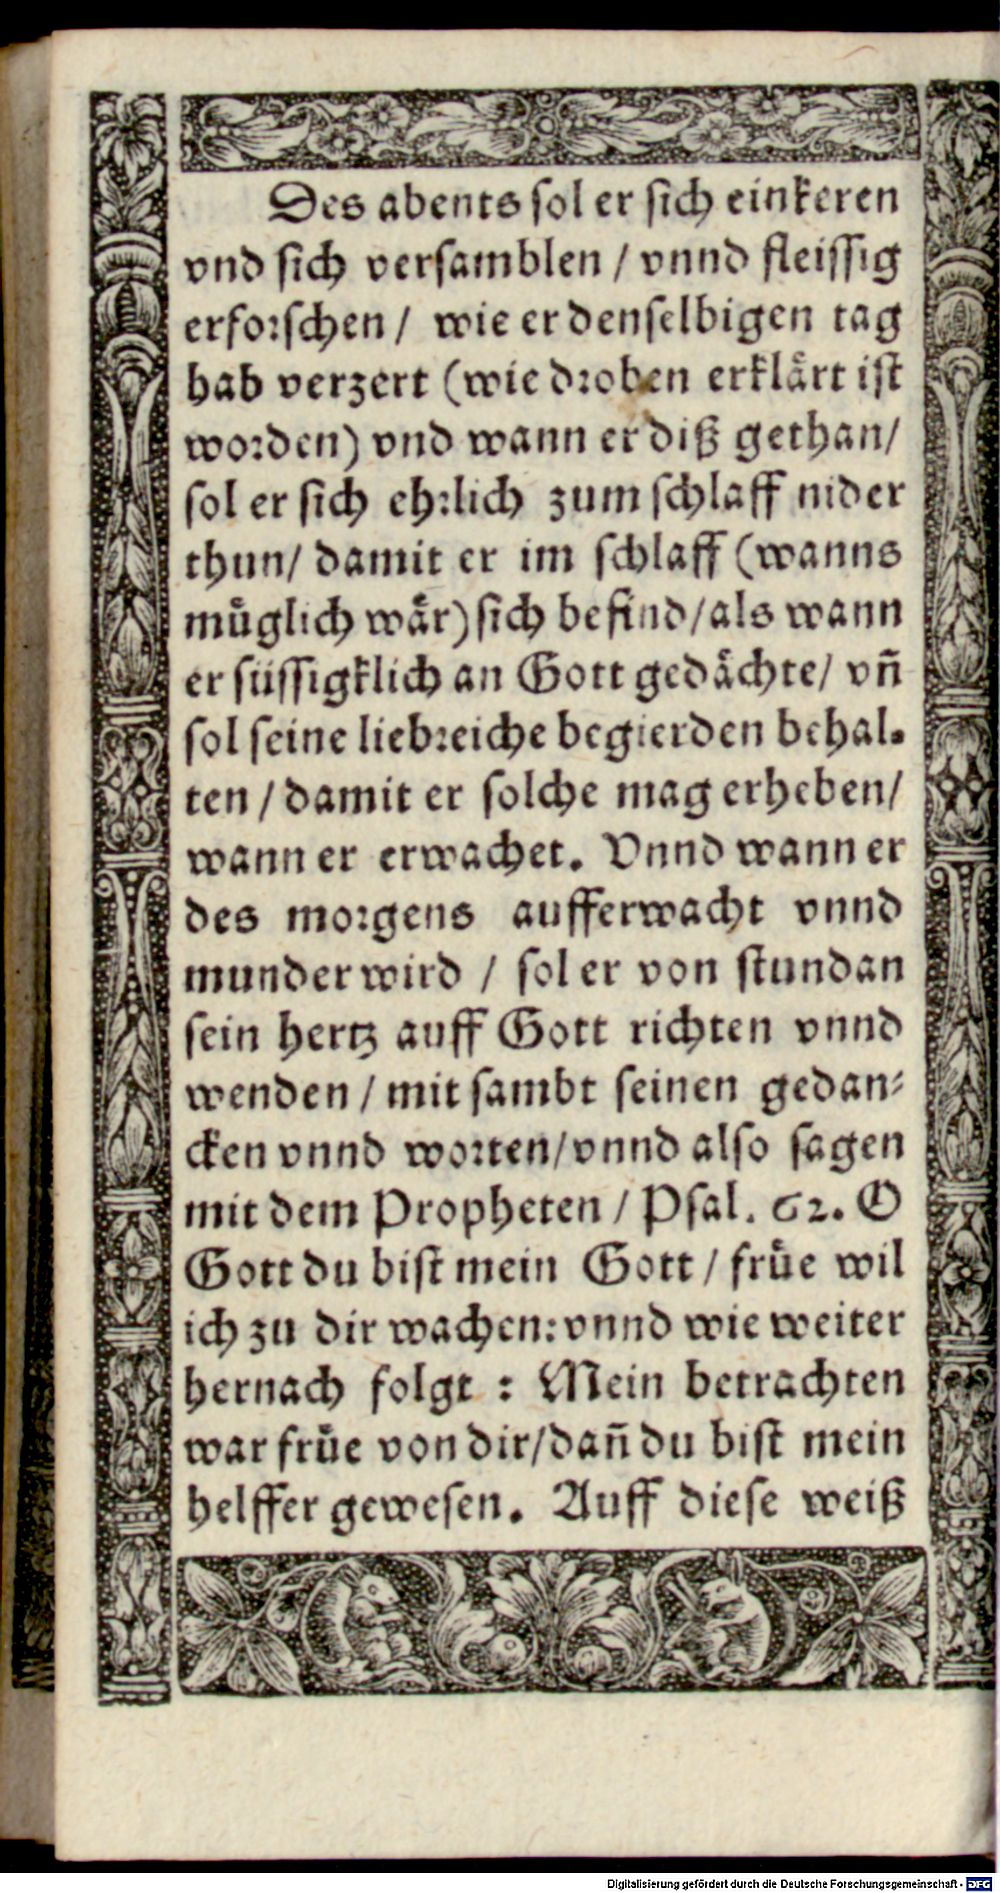 Des abents sol er sich einkeren
vnd sich versamblen / vnnd fleissig
erforschen / wie er denselbigen tag
hab verzert (wie droben erklårt ist
worden) vnd wann er diß gethan/
sol er sich ehrlich zum schlaff nider
thun/ damit er im schlaff (wanns
můglich wår) sich befind/als wann
er süssigklich an Gott gedåchte/ vñ
sol seine liebreiche begierden behal-
ten / damit er solche mag erheben/
wann er erwachet. Vnnd wann er
des morgens aufferwacht vnnd
munder wird / sol er von stundan
sein hertz auff Gott richten vnnd
wenden / mit sambt seinen gedan-
cken vnnd worten/vnnd also sagen
mit dem Propheten / Psal. 62. O
Gott du bist mein Gott / frůe wil
ich zu dir wachen: vnnd wie weiter
hernach folgt : Mein betrachten
war frůe von dir/dañ du bist mein
helffer gewesen. Auff diese weiß
Digitalisierung gefördert durch die Deutsche Forschungsgemeinschaft - DFG